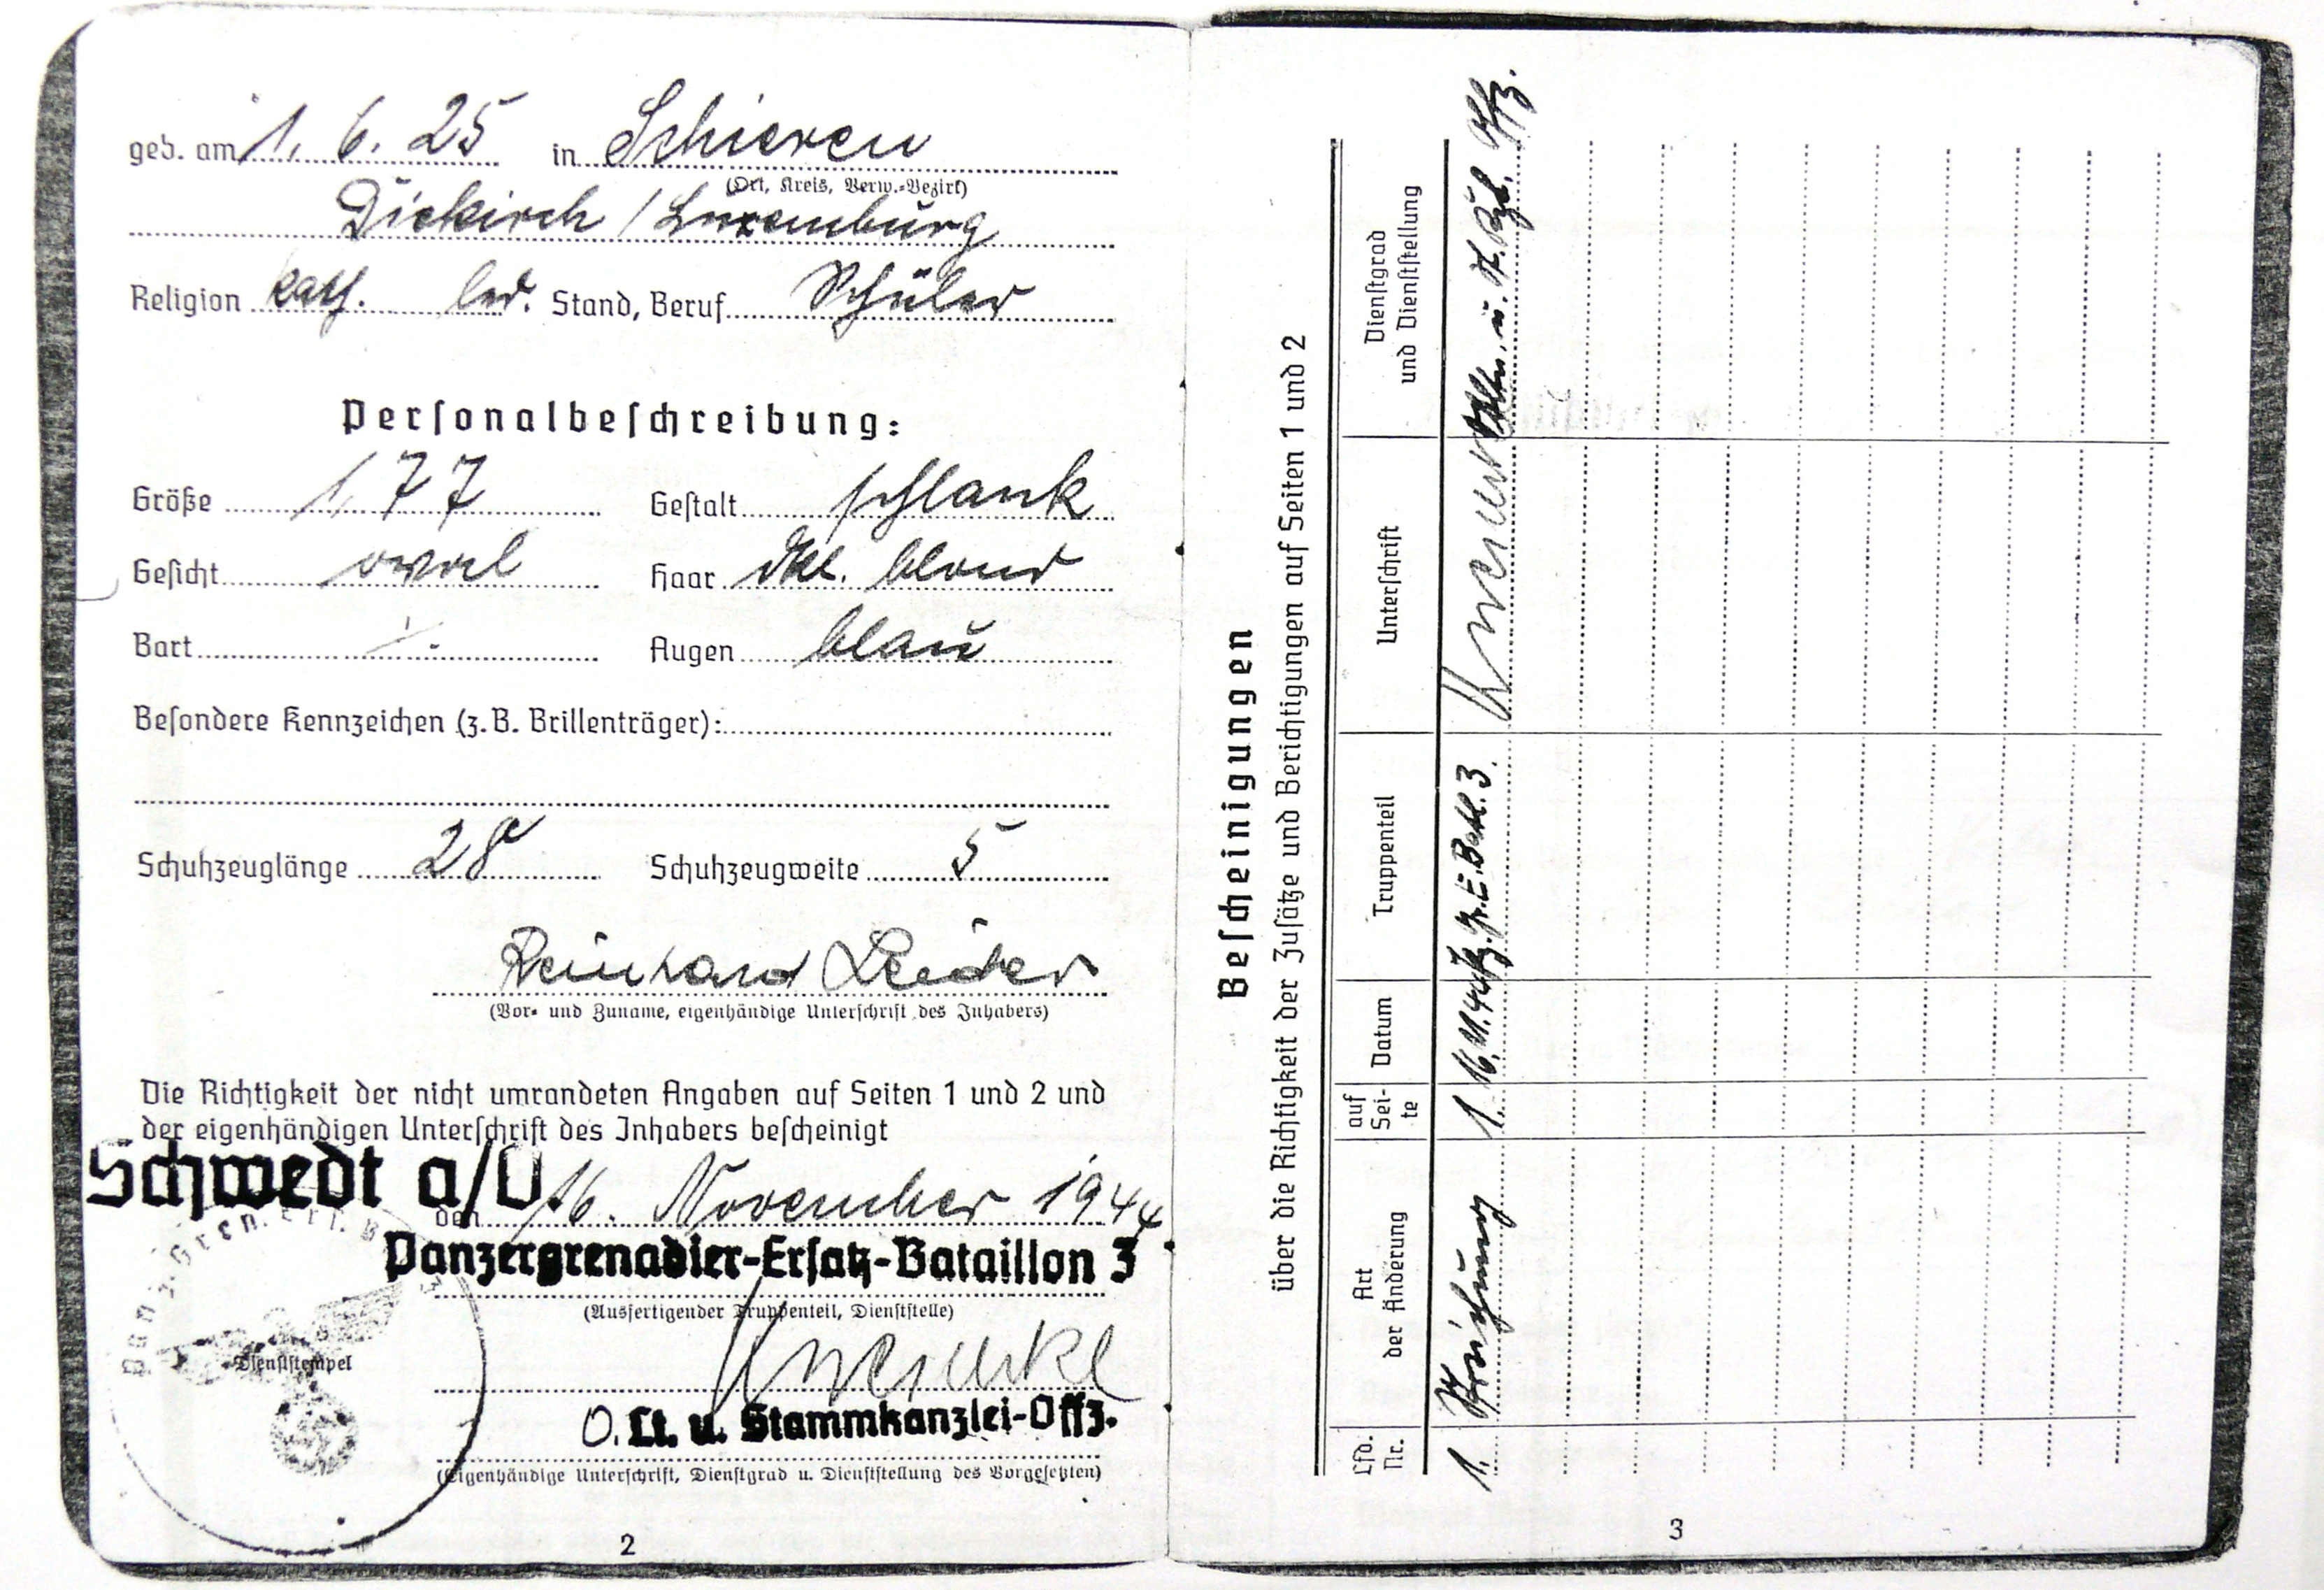 geb. am 1. 6. 25 in Schieren
(Ort, Kreis, Verw.-Bezirk)
Diekirch / Luxemburg
Religion kath. led. Stand, Beruf Schüler
Personalbeschreibung:
Größe 1,77 Gestalt schlank
Gesicht oval Haar dkl. blond
Bart ./. Augen blau
Besondere Kennzeichen (z. B. Brillenträger):
Schuhzeuglänge 28 Schuhzeugweite 5
Reinhard Leider
(Vor- und Zuname, eigenhändige Unterschrift des Inhabers)
Die Richtigkeit der nicht umrandeten Angaben auf Seiten 1 und 2 und
der eigenhändigen Unterschrift des Inhabers bescheinigt
Schwedt a/O.
den 16. November 1944
Panzergrenadier-Ersatz-Bataillon 3
(Ausfertigender Truppenteil, Dienststelle)
Dienststempel
O. Lt. u. Stammkanzlei-Offz.
(Eigenhändige Unterschrift, Dienstgrad u. Dienststellung des Vorgesetzten)
2
Bescheinigungen
über die Richtigkeit der Zusätze und Berichtigungen auf Seiten 1 und 2
Lfd. Nr.
Art der Änderung
auf Sei- te
Datum
Truppenteil
Unterschrift
Dienstgrad und Dienststellung
1. Streichung 1. 16.11.44 Pz. Gr. E. Batl. 3.
3